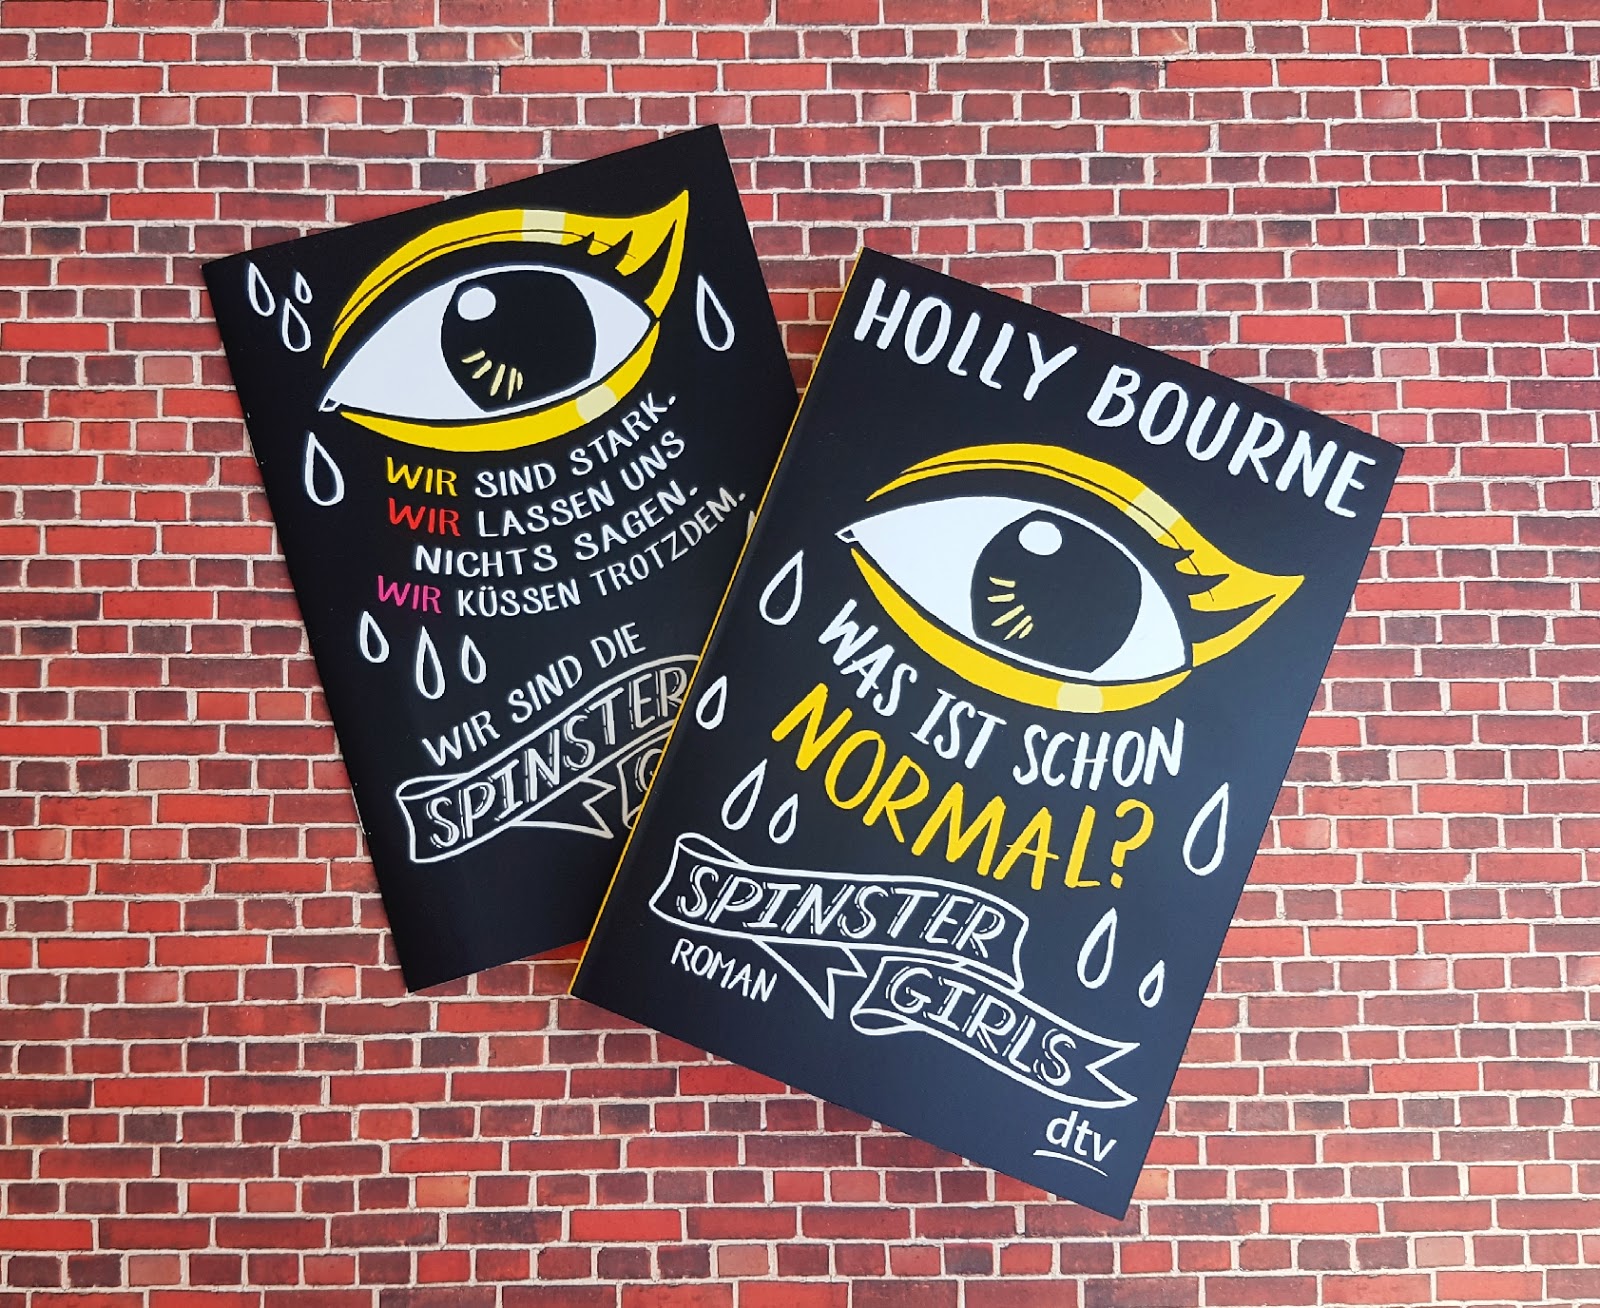 WIR SIND STARK.
WIR LASSEN UNS
NICHTS SAGEN.
WIR KÜSSEN TROTZDEM.
WIR SIND DIE
SPINSTER
HOLLY BOURNE
WAS IST SCHON
NORMAL?
SPINSTER
GIRLS
ROMAN
dtv